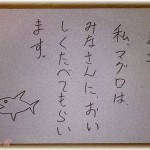 私、マグロは、
みなさんに、おい
しくたべてもらい
ます。